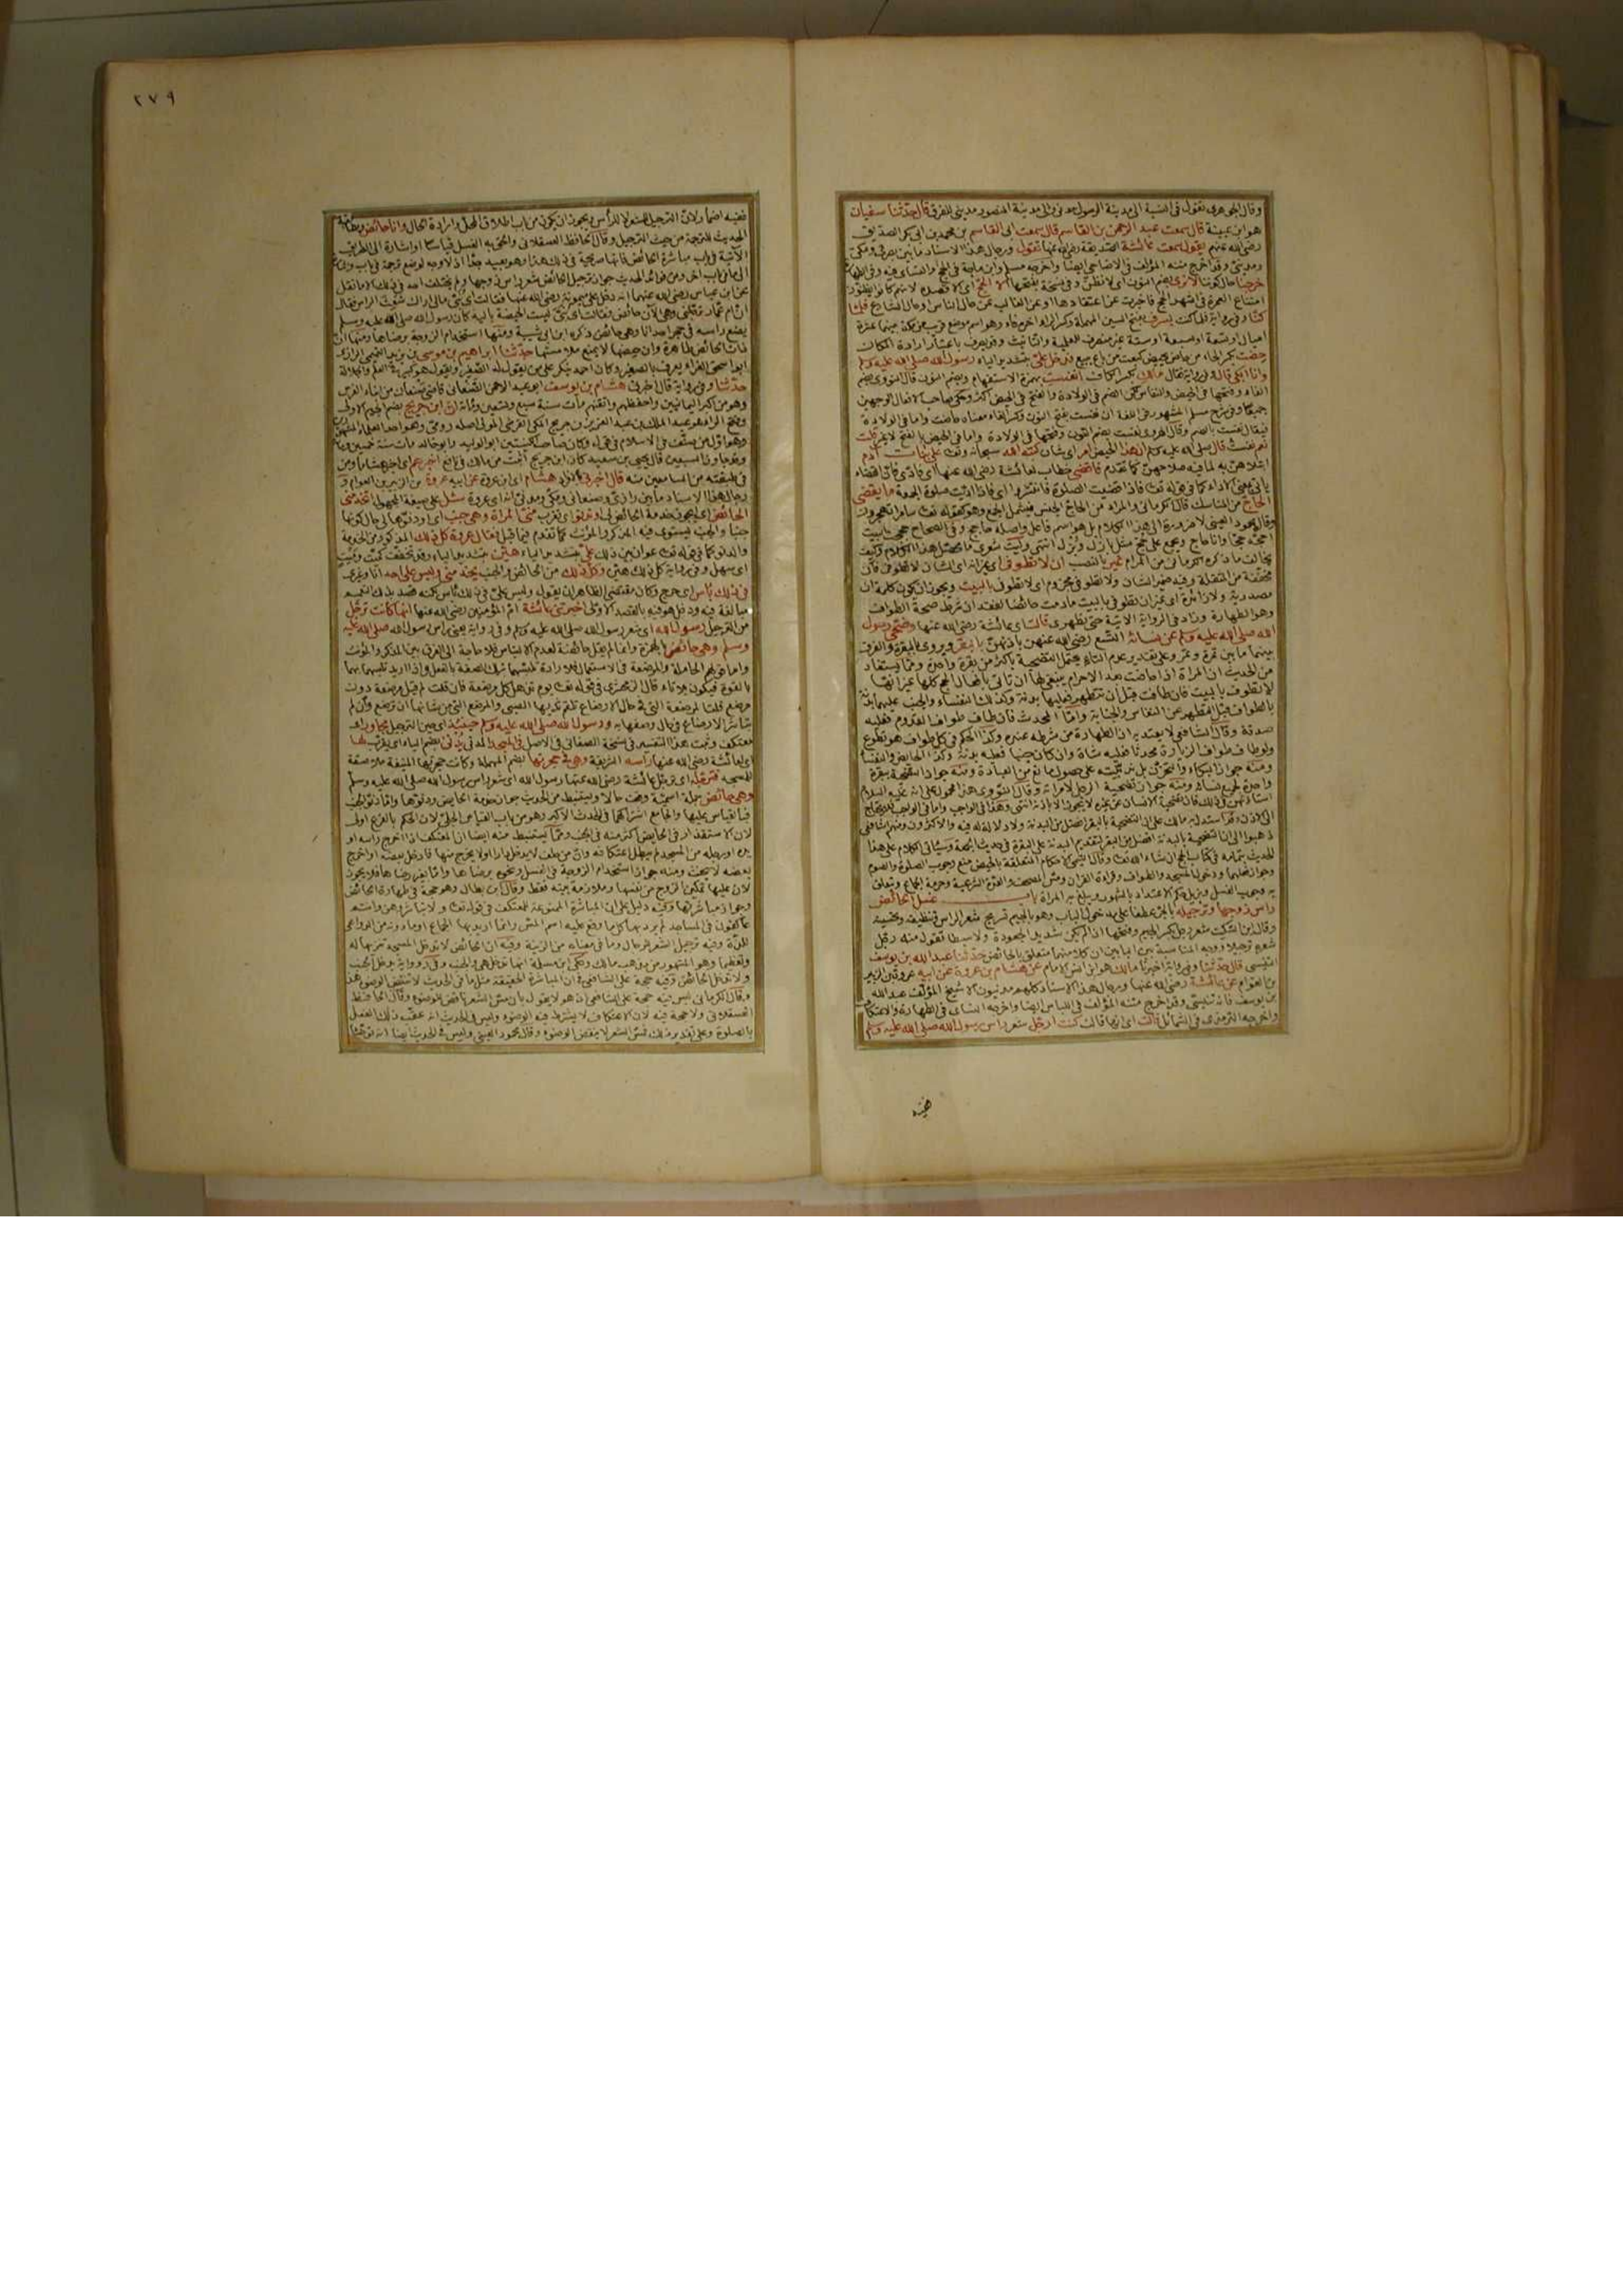 وقال الجوهري تقول في النسبة الى مدينة الرسول مدني والى مدينة المنصور مديني للفرق قال حدثنا سفيان
هو ابن عيينة قال سمعت عبد الرحمن بن القاسم قال سمعت ابي القاسم بن محمد بن ابي بكر الصديق
رضي الله عنهم يقول سمعت عائشة الصديقة رضي الله عنها تقول ورجال هذا الاسناد ما بين بصري ومكي
ومديني وقد اخرج متنه المؤلف في الاضاحي ايضا واخرجه مسلم وابن ماجة في الحج والنسائي فيه وفي الطهارة
خرجنا حال كوننا لا نرى بضم النون اي لا نظن وفي نسخة بفتحها الا الحج اي الا قصده لانهم كانوا يظنون
امتناع العمرة في اشهر الحج فاخبرت عن اعتقادها او عن الغالب عن حال الناس او حال الشارع فلما
كنا وفي رواية فلما كنت بسرف بفتح السين المهملة وكسر الراء اخره فاء وهو اسم موضع قريب من مكة بينهما عشرة
اميال او تسعة او سبعة او ستة غير منصرف للعلمية والتأنيث وقد يصرف باعتبار ارادة المكان
حضت بكسر الحاء من حاض يحيض كبعت من باع يبيع فدخل علي بتشديد الياء رسول الله صلى الله عليه وسلم
وانا ابكي قال وفي رواية فقال مالك بكسر الكاف انفست بهمزة الاستفهام وبضم النون قال النووي بضم
الفاء وفتحها في الحيض والنفاس لكن الضم في الولادة والفتح في الحيض اكثر وحكى صاحب الافعال الوجهين
جميعا وفي شرح مسلم المشهور في اللغة ان نفست بفتح النون وكسر الفاء معناه حاضت واما في الولادة
فيقال نفست بالضم وقال الهروي نفست بضم النون وفتحها في الولادة واما في الحيض بالفتح لا غير قلت
نعم نفست قال صلى الله عليه وسلم ان هذا الحيض امر اي شان كتبه الله سبحانه وتعالى على بنات آدم
ابتلاهن به لما فيه صلاحهن كما تقدم فاقضي خطاب لعائشة رضي الله عنها اي فادي فان القضاء
ياتي بمعنى الاداء كما في قوله تعالى فاذا قضيت الصلوة فانتشروا اي فاذا اديت صلوة الجمعة ما يقضي
الحاج من المناسك قال الكرماني والمراد من الحاج الجنس فيشمل الجمع وهو كقوله تعالى سامرا تهجرون
وقال محمود العيني لا ضرورة الى هذا الكلام بل هو اسم فاعل واصله حاجج وفي الصحاح حججت البيت
احجه حجا وانا حاج ويجمع على حجج مثل بازل وبزل انتهى وليت شعري ما محصل هذا الكلام وكيف
يخالف ما ذكره الكرماني من المرام غير بالنصب ان لا تطوفي اي غير انه اي الشان لا تطوفي فان
مخففة من المثقلة وفيه ضمير الشان ولا تطوفي مجزوم اي لا تطوفي بالبيت ويجوز ان يكون كلمة ان
مصدرية ولا زائدة اي غير ان تطوفي بالبيت ما دمت حائضا لفقدان شرط صحة الطواف
وهو الطهارة وزاد في الرواية الاتية حتى تطهري قالت اي عائشة رضي الله عنها وضحى رسول
الله صلى الله عليه وسلم عن نسائه التسع رضي الله عنهن باذنهن بالبقر ويروى بالبقرة والفرق
بينهما ما بين تمرة وتمر وعلى تقدير عدم التاء يحتمل التضحية باكثر من بقرة واحدة ومما يستفاد
من الحديث ان المراة اذا حاضت بعد الاحرام ينبغي لها ان تاتي بافعال الحج كلها غير انها
لا تطوف بالبيت فان طافت قبل ان تتطهر فعليها بدنة وكذلك النفساء والجنب عليهما بدنة
بالطواف قبل التطهر عن النفاس والجنابة واما المحدث فان طاف طواف القدوم فعليه
صدقة وقال الشافعي لا يعتد به ان الطهارة من شرطه عنده وكذا الحكم في كل طواف هو تطوع
ولو طاف طواف الزيارة محدثا فعليه شاة وان كان جنبا فعليه بدنة وكذا الحائض والنفساء
ومنه جواز البكاء والحزن بل ندبيته على حصول مانع من العبادة ومنه جواز التضحية ببقرة
واحدة لجميع نسائه ومنه جواز تضحية الرجل لامراته وقال النووي هذا محمول على انه عليه السلام
استاذنهن في ذلك فان تضحية الانسان عن غيره لا يجوز الا باذنه انتهى وهذا في الواجب واما في التطوع فلا يحتاج
الى اذن وقد استدل به مالك على ان التضحية بالبقر افضل من البدنة ولا دلالة له فيه والاكثرون ومنهم الشافعي
ذهبوا الى ان التضحية بالبدنة افضل من البقر لتقديم البدنة على البقرة في حديث الجمعة وسياتي الكلام على هذا
الحديث بتمامه في كتاب الحج ان شاء الله تعالى وقال التيمي الاحكام المتعلقة بالحيض منع وجوب الصلوة والصوم
وجواز فعلهما ودخول المسجد والطواف وقراءة القران ومس المصحف والعدة الشرعية وحرمة الجماع وتعلق
به وجوب الغسل وتزيل حكم الاعتداد بالشهور وبلوغ به المراة باب غسل الحائض
راس زوجها وترجيله بالجر عطفا على مدخول الباب وهو بالجيم تسريح شعر الراس وتنظيفه وتحسينه
وقال ابن السكيت شعر رجل بكسر الجيم وفتحها اذا لم يكن شديد الجعودة ولا سبطا تقول منه رجل
شعره ترجيلا ووجه المناسبة بين البابين ان كلا منهما متعلق بالحائض حدثنا عبد الله بن يوسف
التنيسي قال حدثنا وفي رواية اخبرنا مالك هو ابن انس الامام عن هشام بن عروة عن ابيه عروة بن الزبير
بن العوام عن عائشة رضي الله عنها ورجال هذا الاسناد كلهم مدنيون الا شيخ المؤلف عبد الله
بن يوسف فانه تنيسي وقد اخرج متنه المؤلف في اللباس ايضا واخرجه النسائي في الطهارة والاعتكاف
واخرجه الترمذي في الشمائل قالت اي انها قالت كنت ارجل شعر راس رسول الله صلى الله عليه وسلم
٢٧٩
ففيه اضمار لان الترجيل للشعر لا للراس ويجوز ان يكون من باب اطلاق المحل وارادة الحال وانا حائض ومطابقة
الحديث للترجمة من حيث الترجيل وقال الحافظ العسقلاني والحق به الغسل قياسا او اشارة الى الطريق
الآتية في باب مباشرة الحائض فانها صريحة في ذلك هذا وهو بعيد جدا اذ لا وجه لوضع ترجمة في باب
الى ما في باب اخر ومن فوائد الحديث جواز ترجيل الحائض شعر راس زوجها ولم يختلف احد في ذلك الا ما نقل
عن ابن عباس رضي الله عنهما انه دخل على ميمونة رضي الله عنها فقالت اي بني مالي اراك شعث الراس فقال
ان ام عمار ترجلني وهي الآن حائض فقالت اي بني ليست الحيضة باليد كان رسول الله صلى الله عليه وسلم
يضع راسه في حجر احدانا وهي حائض ذكره ابن ابي شيبة ومنها استخدام الزوجة برضاها ومنها ان
ذات الحائض طاهرة وان حيضها لا يمنع ملامستها حدثنا ابراهيم بن موسى بن يزيد التميمي الرازي
ابو اسحق الفراء يعرف بالصغير وكان احمد ينكر على من يقول له الصغير ويقول هو كبير في العلم والجلالة
حدثنا وفي رواية قال اخبرنا هشام بن يوسف ابو عبد الرحمن الصنعاني قاضي صنعاء من ابناء الفرس
وهو من اكبر اليمانيين واحفظهم واتقنهم مات سنة سبع وتسعين ومائة ان ابن جريج بضم الجيم الاولى
وفتح الراء هو عبد الملك بن عبد العزيز بن جريج المكي القرشي المولى اصله رومي وهو احد العلماء المشهورين
وهو اول من صنف في الاسلام في قوله وكان صاحب كنيتين ابو الوليد وابو خالد مات سنة خمسين ومائة
وقد جاوز السبعين قال يحيى بن سعيد كان ابن جريج اثبت من مالك في نافع اخبرهم اي اخبر هشاما ومن
في طبقته من السامعين منه قال اخبرني بالافراد هشام اي ابن عروة عن ابيه عروة بن الزبير بن العوام
رجال هذا الاسناد ما بين رازي وصنعاني ومكي ومدني انه اي عروة سئل على صيغة المجهول اتخدمني
الحائض اي يجوز خدمة الحائض لي او تدنو اي تقرب مني المراة وهي جنب اي او دنوها الى حال كونها
جنبا والجنب يستوي فيه المذكر والمؤنث كما تقدم فيما قبل فقال عروة كل ذلك المذكور من الخدمة
والدنو كما في قوله تعالى عوان بين ذلك علي بتشديد الياء هين بتشديد الياء وقد تخفف كميت وميت
اي سهل وفي رواية كل ذلك هين وكل ذلك من الحائض والجنب يخدمني وليس على احد انا وغيري
في ذلك باس اي حرج وكان مقتضى الظاهر ان يقول وليس علي في ذلك باس لكنه قصد بذلك التعميم
مبالغة فيه ودخل هو فيه بالقصد الاولى اخبرتني عائشة ام المؤمنين رضي الله عنها انها كانت ترجل
من الترجيل رسول الله اي شعر رسول الله صلى الله عليه وسلم وفي رواية يعني راس رسول الله صلى الله عليه
وسلم وهي حائض بالهمزة وانما لم يقل حائضة لعدم الالتباس فلا حاجة الى الفرق بين المذكر والمؤنث
واما قولهم الحاملة والمرضعة في الاستعمال فلارادة تلبسهما بتلك الصفة بالفعل واذا اريد تلبسهما بهما
بالقوة فيكون بلا تاء قال الزمخشري في قوله تعالى يوم تذهل كل مرضعة فان قلت لم قيل مرضعة دون
مرضع قلت المرضعة التي في حال الارضاع تلقم ثديها الصبي والمرضع التي من شانها ان ترضع وان لم
تباشر الارضاع في حال وصفها به ورسول الله صلى الله عليه وسلم حينئذ اي حين الترجيل مجاور اي
معتكف وثبت هذا التفسير في نسخة الصغاني في الاصل في المسجد المدني يدني بضم الياء اي يقرب لها
اي لعائشة رضي الله عنها راسه الشريفة وهي في حجرتها بضم المهملة وكانت حجرتها المنيفة ملاصقة
للمسجد فترجله اي ترجل عائشة رضي الله عنها رسول الله اي شعر راس رسول الله صلى الله عليه وسلم
وهي حائض جملة اسمية وقعت حالا ويستنبط من الحديث جواز خدمة الحائض ودنوها واما دنو الجنب
فبالقياس عليها والجامع اشتراكهما في الحدث الاكبر وهو من باب القياس الجلي لان الحكم بالفرع اولى
لان الاستقذار في الحائض اكثر منه في الجنب ومما يستنبط منه ايضا ان المعتكف اذا اخرج راسه او
يده او رجله من المسجد لم يبطل اعتكافه وان من حلف لا يدخل دارا او لا يخرج منها فادخل بعضه او اخرج
بعضه لا يحنث ومنه جواز استخدام الزوجة في الغسل ونحوه برضاها واما بغير رضاها فلا يجوز
لان عليها تمكين الزوج من نفسها وملازمة بيته فقط وقال ابن بطال وهو حجة في طهارة الحائض
وجواز مباشرتها وفيه دليل على ان المباشرة الممنوعة للمعتكف في قوله تعالى ولا تباشروهن وانتم
عاكفون في المساجد لم يرد بها كل ما وقع عليه اسم المس وانما اريد بها الجماع او ما دونه من الدواعي
للذة وفيه ترجيل الشعر للرجال وما في معناه من الزينة وفيه ان الحائض لا تدخل المسجد تنزيها له
وتعظيما وهو المشهور من مذهب مالك وحكى ابن مسلمة انها تدخل هي والجنب وفي رواية يدخل الجنب
ولا تدخل الحائض وفيه حجة على الشافعي في ان المباشرة الخفيفة مثل ما في الحديث لا تنقض الوضوء هذا
وقال الكرماني ليس فيه حجة على الشافعي اذ هو لا يقول بان مس الشعر ناقض للوضوء وقال الحافظ
العسقلاني ولا حجة فيه لان الاعتكاف لا يشترط فيه الوضوء وليس في الحديث انه عقب ذلك الفعل
بالصلوة وعلى تقدير ذلك فمس الشعر لا ينقض الوضوء وقال محمود العيني وليس في الحديث ايضا انه توضأ
ففيه